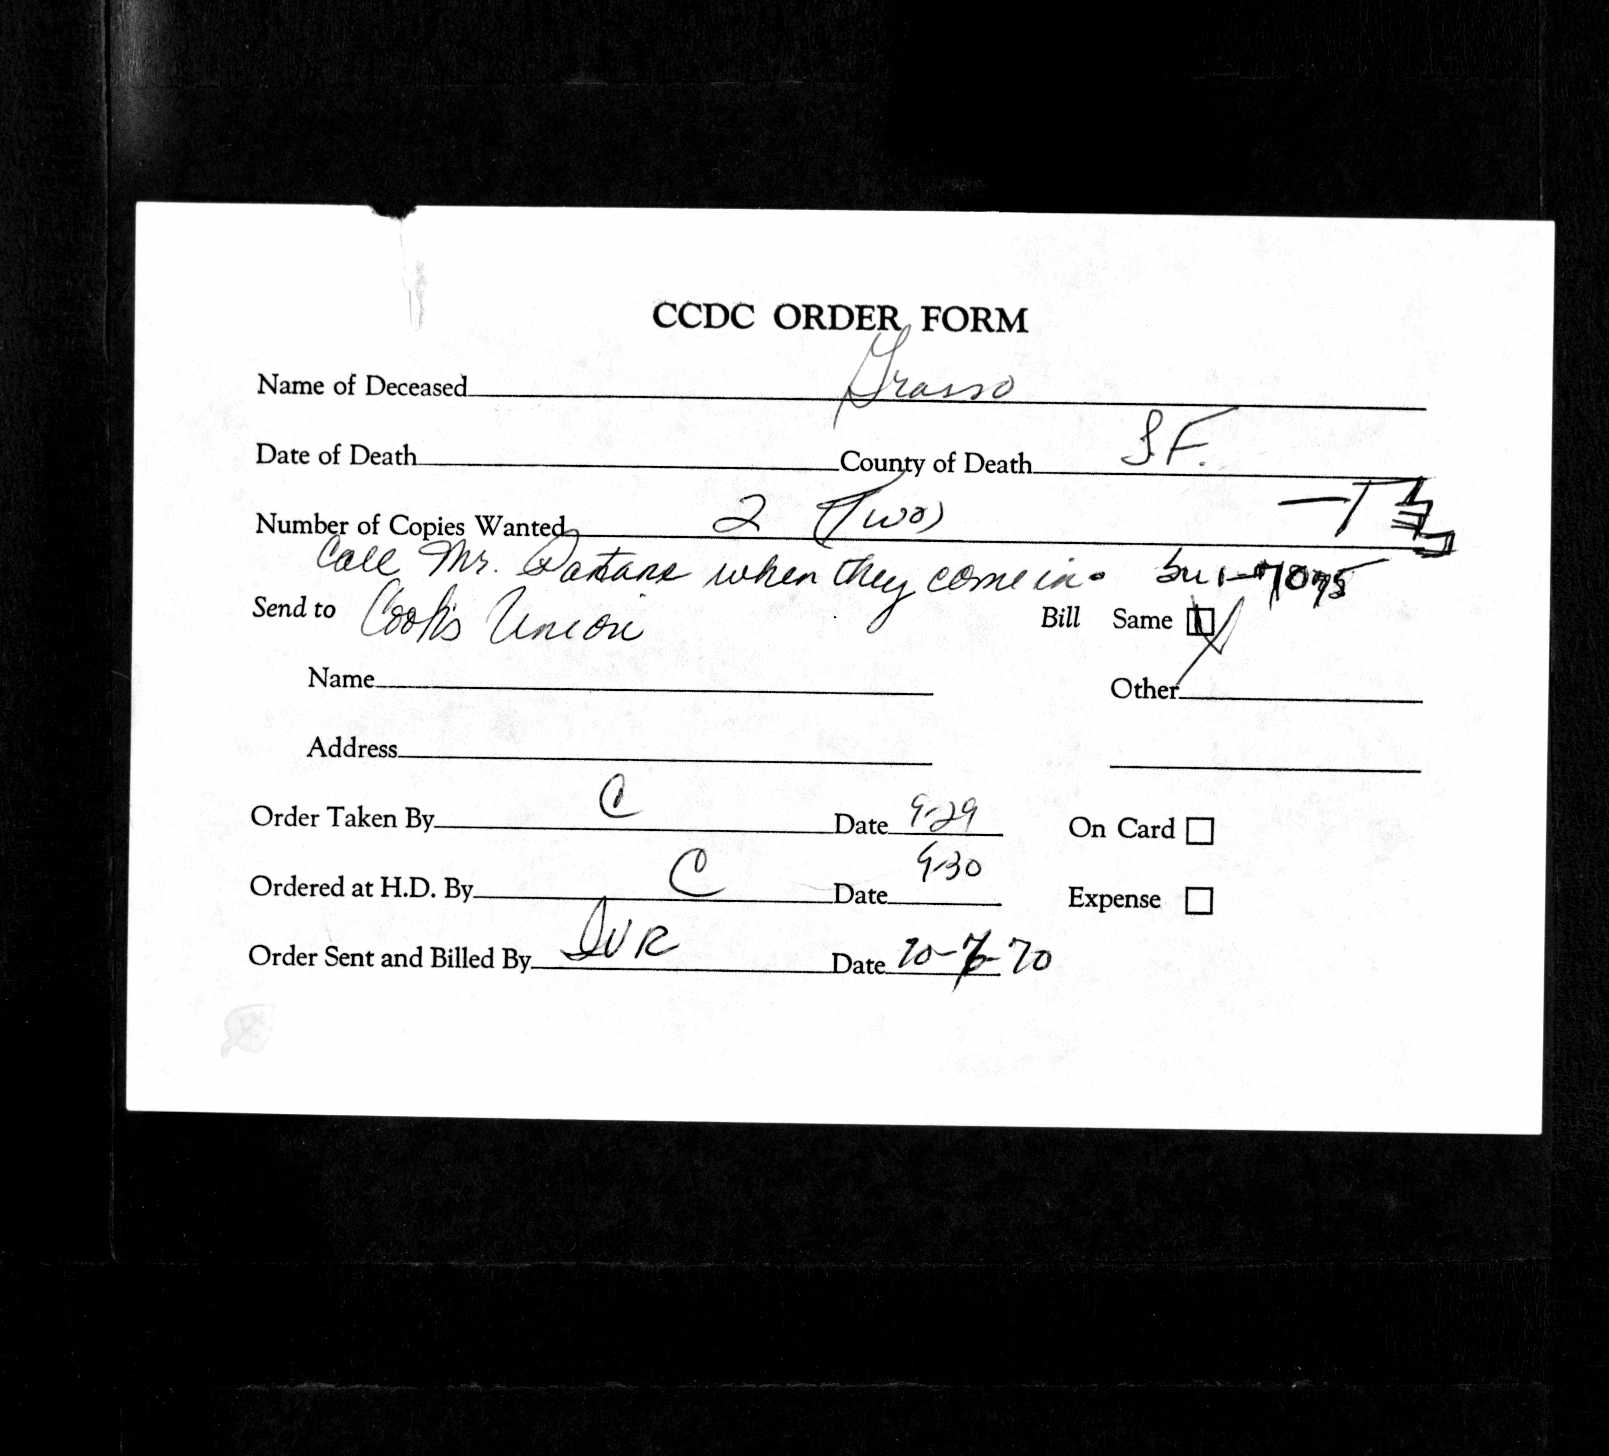 CCDC ORDER FORM
Name of Deceased Grasso
Date of Death County of Death S.F.
Number of Copies Wanted 2 (Two)
Call Mr. when they come in. Su 1-7075
Send to Cook's Union Bill Same
Name Other
Address
Order Taken By C Date 9-29 On Card
Ordered at H.D. By C Date 9-30 Expense
Order Sent and Billed By Date 10-7-70